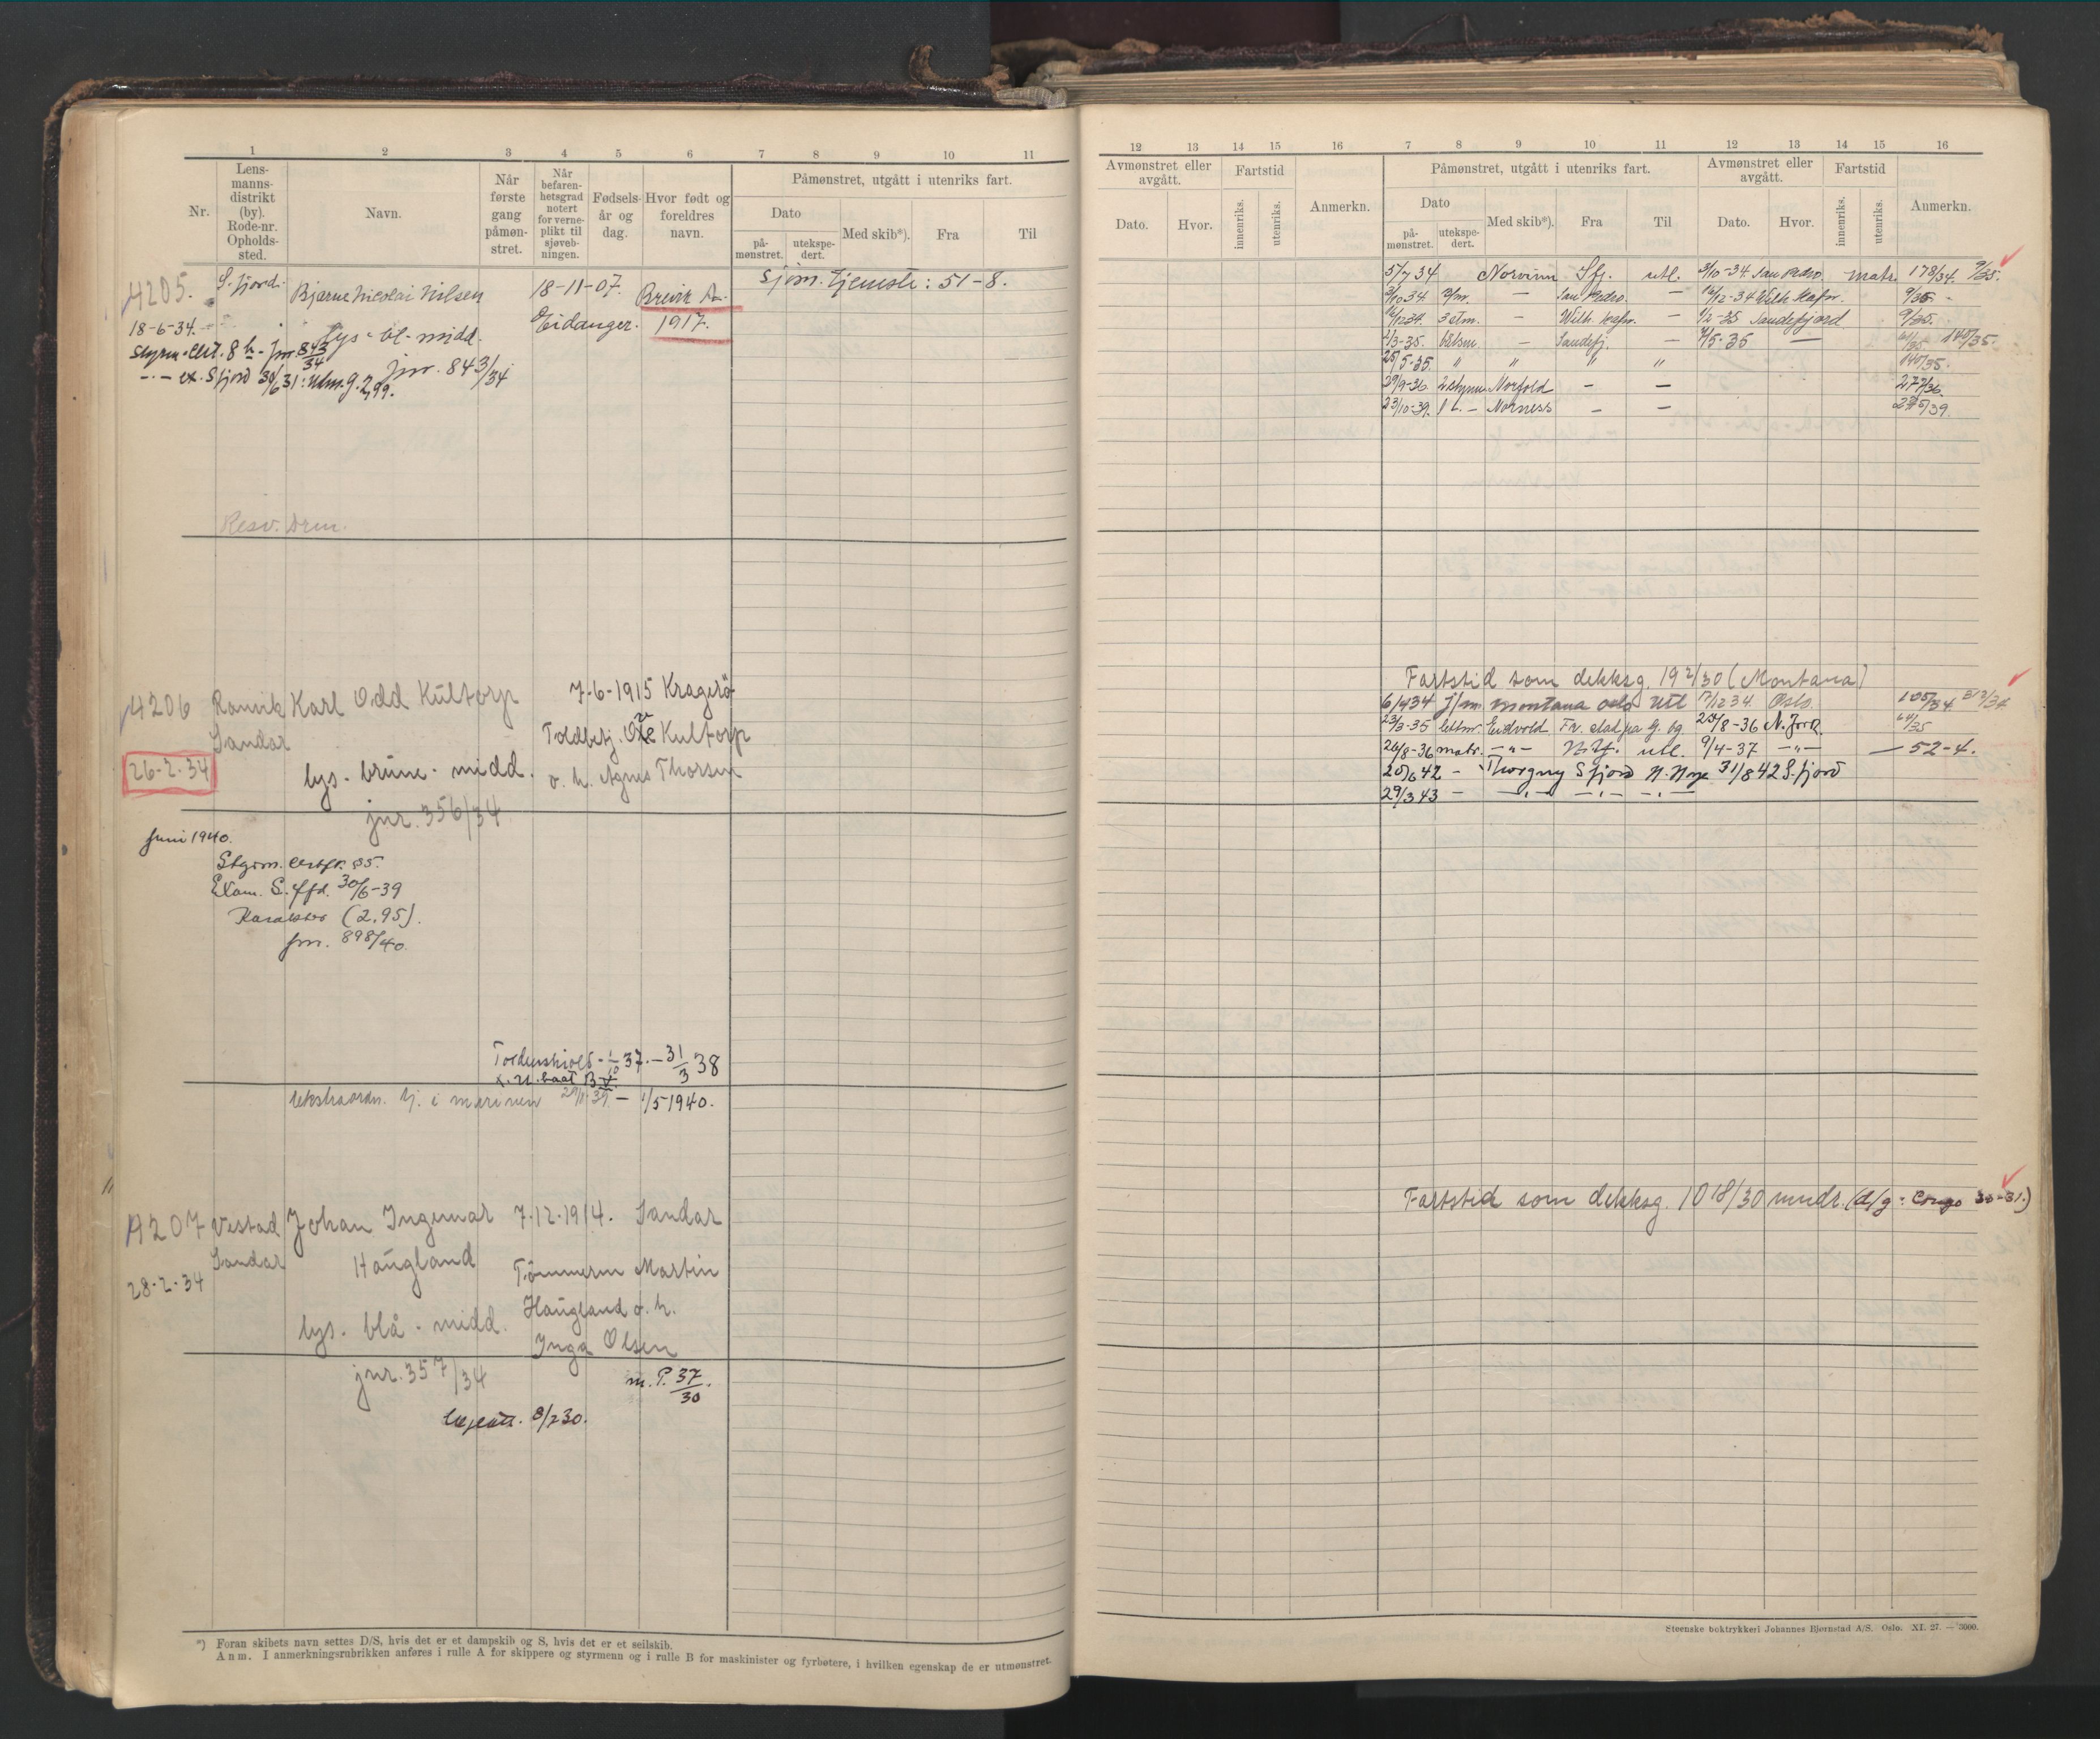 1 2 3 4 5 6 7 8 9 10 11
Nr.
Lens-
manns-
distrikt
(by).
Rode-nr.
Opholds-
sted.
Navn.
Når
første
gang
påmøn-
stret.
Når
befaren-
hetsgrad
notert
for verne-
plikt til
sjøveb-
ningen.
Fødsels-
år og
dag.
Hvor født og
foreldres
navn.
Påmønstret, utgått i utenriks fart.
Dato
på-
mønstret.
utekspe-
dert.
Med skib*).
Fra
Til
4205. S. fjord. Bjarne Nicolai Nilsen 18-11-07. Brevik
sjøm. tjeneste: 51-8.
18-6-34. Eidanger. 1917.
lys - bl - midd.
Styrm. cert. 8 h - Jnr. 843/34
jnr. 843/34
ex. Sfjord 30/6 31: 2,99.
Resv. Drm.
4206 Ranvik Karl Odd Kultorp 7-6-1915 Kragerö
Sandar
Toldbetj. Kultorp
26-2-34
lys - brune - midd. o. h. Agnes Thorsen
jnr. 356/34
Juni 1940.
Styrm. 35.
Exam. S. ffd. 30/6-39
Karakter (2,95).
Jnr. 898/40.
Tordenskiold - 1/10 37 - 31/3 38
ekstraordn. tj. i marinen 29/11-39 - 1/5 1940.
4207 Vestad Johan Ingemar 7.12.1914. Sandar
Sandar Haugland
28-2-34
Tömmerm Martin
Haugland o. h.
lys - blå - midd.
Inga Olsen
jnr. 357/34
m. P. 37/30.
8/2 30.
*) Foran skibets navn settes D/S, hvis det er et dampskib og S, hvis det er et seilskib.
Anm. I anmerkningsrubrikken anføres i rulle A for skippere og styrmenn og i rulle B for maskinister og fyrbøtere, i hvilken egenskap de er utmønstret.
12 13 14 15 16 7 8 9 10 11 12 13 14 15 16
Avmønstret eller
avgått.
Dato.
Hvor.
Fartstid
innenriks.
utenriks.
Anmerkn.
Påmønstret, utgått i utenriks fart.
Dato
på-
mønstret.
utekspe-
dert.
Med skib*).
Fra
Til
Avmønstret eller
avgått.
Dato.
Hvor.
Fartstid
innenriks.
utenriks.
Anmerkn.
5/7 34 Norvinn Sfj. utl. 3/10-34. San Pedro matr. 178/34. 9/35.
3/10 34 — San Pedro. — 16/12-34 Wilh. Hafn. 9/35 -
16/12 34. 3 stm. — Wilh. Hafn. — 1/2-35 Sandefjord 9/35.
1/3-35. — Sandefj. — 4/5-35 — 140/35.
25/5-35. " " " " 140/35.
29/9-36 2 styrm Norfold — — 277/36.
23/10-39. 1 st. — Norness — — 275/39.
Fartstid som dekksg. 19 2/30 (Montana)
6/4 34 J/m montana oslo utl 17/12 34. Oslo. 105/34 312/34
23/3-35 lettm. Eidvold Fr. stad pa G. bg. 25/8-36 N. York 64/35
26/8-36 matr. — " — N. Y. utl. 9/4-37 — " — — 52-4.
20/6 42 — Thorgny Sfjord N. Nge 31/8 42 S. fjord
29/3 43 — — " — — " — — " —
Fartstid som dekksg. 10 18/30 mndr. (d/g: Congo 30-31.)
Steenske boktrykkeri Johannes Bjørnstad A/S. Oslo. XI. 27. — 3000.